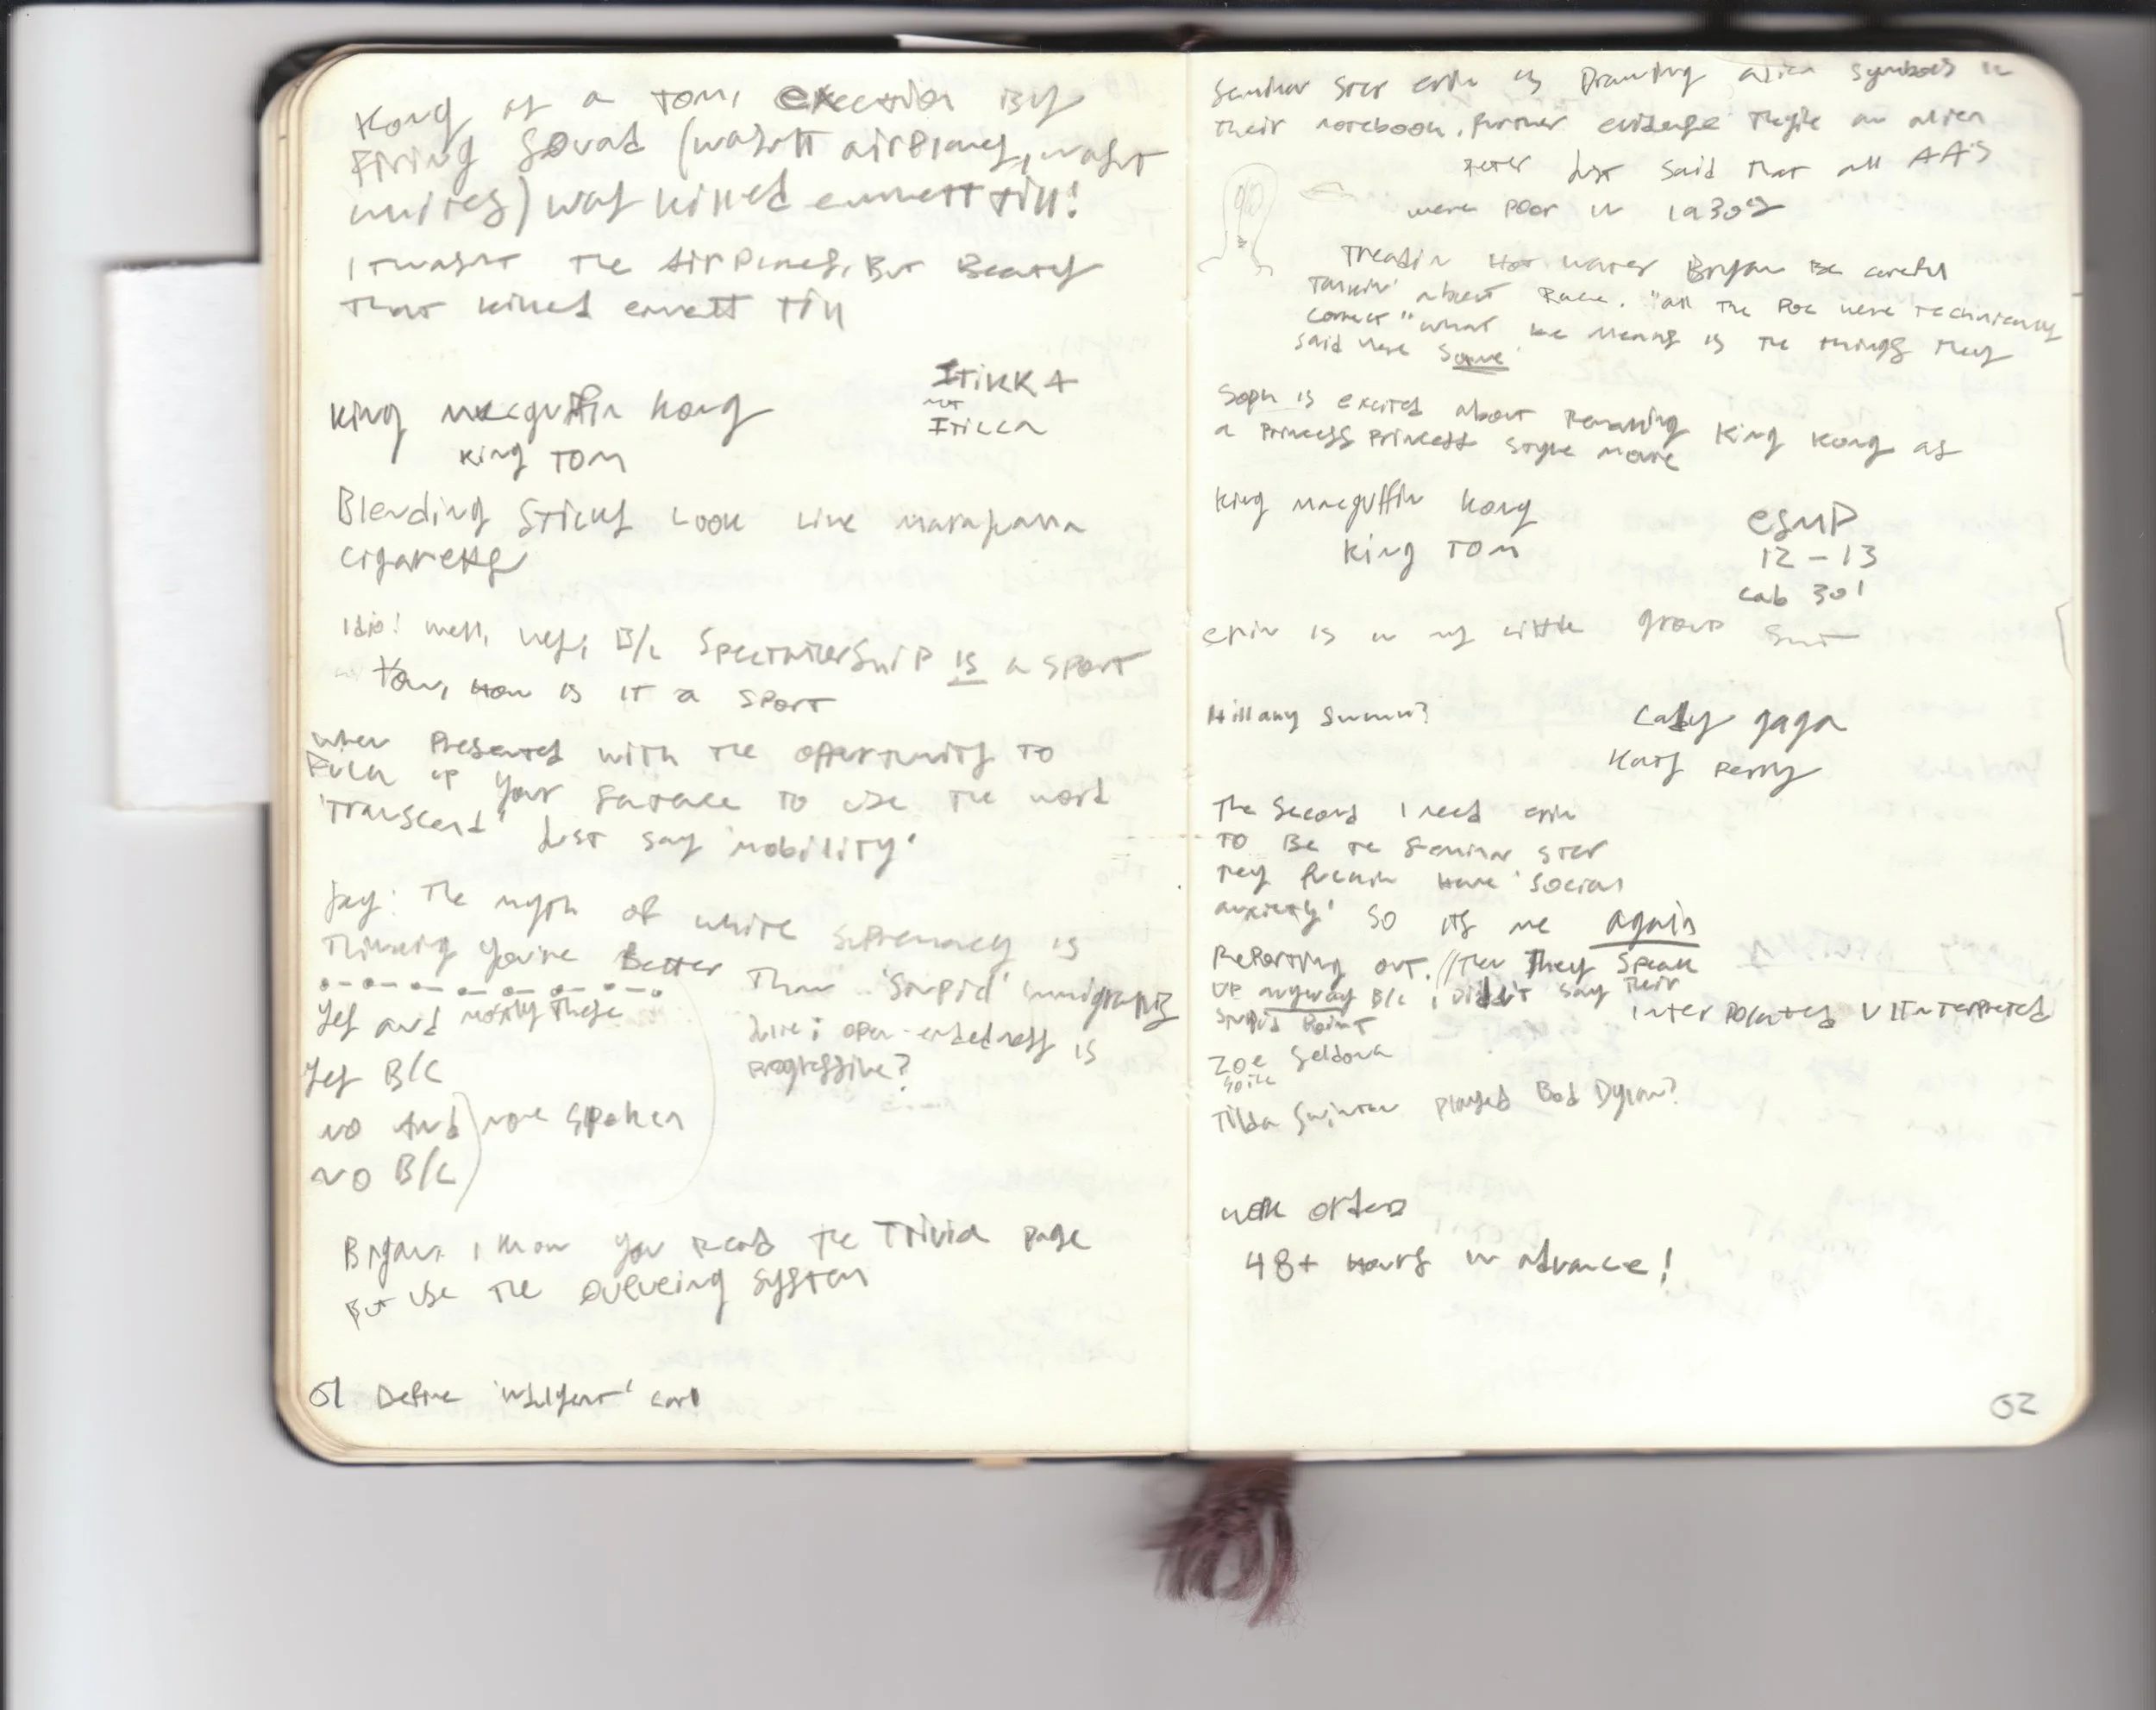 Kong as a Tom, execution By
Firing Squad (wasn't airplanes, wasn't
whites) was killed emmett till!
It wasn't the Airplanes, But Beauty
That killed emmett Till
King macguffin Kong
King Tom
ITIKKA
not
ITICCA
Blending Sticks Look Like
cigarettes
Idio! well, yes, B/c Spectatorship is a sport
Tom, How is it a sport
when Presented with the opportunity to
Fuck up your sentence to use the word
'Transcend' Just say 'mobility'
Jay: The myth of white supremacy is
Thinking you're Better Than 'Stupid' immigrants
Yes and mostly these
Yes B/c
No And
No B/c
more spoken
: open-endedness is
Progressive?
Bryan, I know you Read the Trivia page
But use the queueing system
61 Define 'indulgent' Carl
Seminar Ster erin is Drawing alien symbols in
their notebook. further evidence they're an alien
Peter Just said that all AA's
were poor in 1930s
Treadin Hot water Bryan Be careful
Talkin' about Race. "all the POC were technically
correct" what he means is the things they
said were some
Soph is excited about Remaking King Kong as
a Princess Princess style movie
King macguffin Kong
King Tom
ESMP
12-13
Cab 301
erin is in my little group
Hillary
Lady gaga
Katy Perry
The Second I need erin
To Be the Seminar ster
They fuckin Have 'social
anxiety' so its me again
Reporting out. // Then They Speak
up anyway B/c I didn't say Their
stupid Point
interpolated v interpreted
Zoe Seldona
Tilda Swinton played Bob Dylan?
work orders
48+ Hours in advance!
62